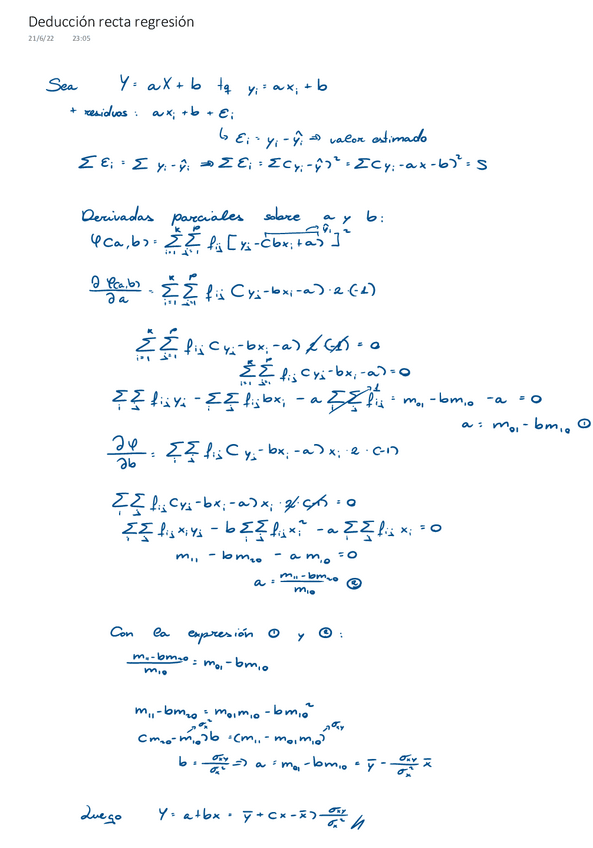 Deducción recta regresión
21/6/22 23:05
Sea Y = aX + b tq yᵢ = axᵢ + b
+ residuos : axᵢ + b + εᵢ
↳ εᵢ = yᵢ - ŷᵢ ⇒ valor estimado
Σ εᵢ = Σ yᵢ - ŷᵢ ⇒ Σ εᵢ = Σ(yᵢ - ŷ)² = Σ(yᵢ - ax - b)² = S
Derivadas parciales sobre a y b :
φ(a,b) = Σᵢ₌₁ᵏ Σⱼ₌₁ᵖ fᵢⱼ [yⱼ - (bxᵢ + a)]² → ŷᵢ
∂φ(a,b)/∂a = Σᵢ₌₁ᵏ Σⱼ₌₁ᵖ fᵢⱼ (yⱼ - bxᵢ - a) · 2 (-1)
Σᵢ₌₁ᵏ Σⱼ₌₁ᵖ fᵢⱼ (yⱼ - bxᵢ - a) 2 (-1) = 0
Σᵢ₌₁ᵏ Σⱼ₌₁ᵖ fᵢⱼ (yⱼ - bxᵢ - a) = 0
Σᵢ Σⱼ fᵢⱼ yⱼ - Σᵢ Σⱼ fᵢⱼ bxᵢ - a Σᵢ Σⱼ fᵢⱼ → 1 = m₀₁ - bm₁₀ - a = 0
a = m₀₁ - bm₁₀ ①
∂φ/∂b = Σᵢ Σⱼ fᵢⱼ (yⱼ - bxᵢ - a) xᵢ · 2 · (-1)
Σᵢ Σⱼ fᵢⱼ (yⱼ - bxᵢ - a) xᵢ · 2 · (-1) = 0
Σᵢ Σⱼ fᵢⱼ xᵢ yⱼ - b Σᵢ Σⱼ fᵢⱼ xᵢ² - a Σᵢ Σⱼ fᵢⱼ xᵢ = 0
m₁₁ - bm₂₀ - a m₁₀ = 0
a = (m₁₁ - bm₂₀)/m₁₀ ②
Con la expresión ① y ② :
(m₁₁ - bm₂₀)/m₁₀ = m₀₁ - bm₁₀
m₁₁ - bm₂₀ = m₀₁m₁₀ - bm₁₀²
(m₂₀ - m₁₀²)b = (m₁₁ - m₀₁m₁₀) → σₓ² → σₓᵧ
b = σₓᵧ/σₓ² ⇒ a = m₀₁ - bm₁₀ = ȳ - σₓᵧ/σₓ² x̄
Luego Y = a + bx = ȳ + (x - x̄) σₓᵧ/σₓ² //